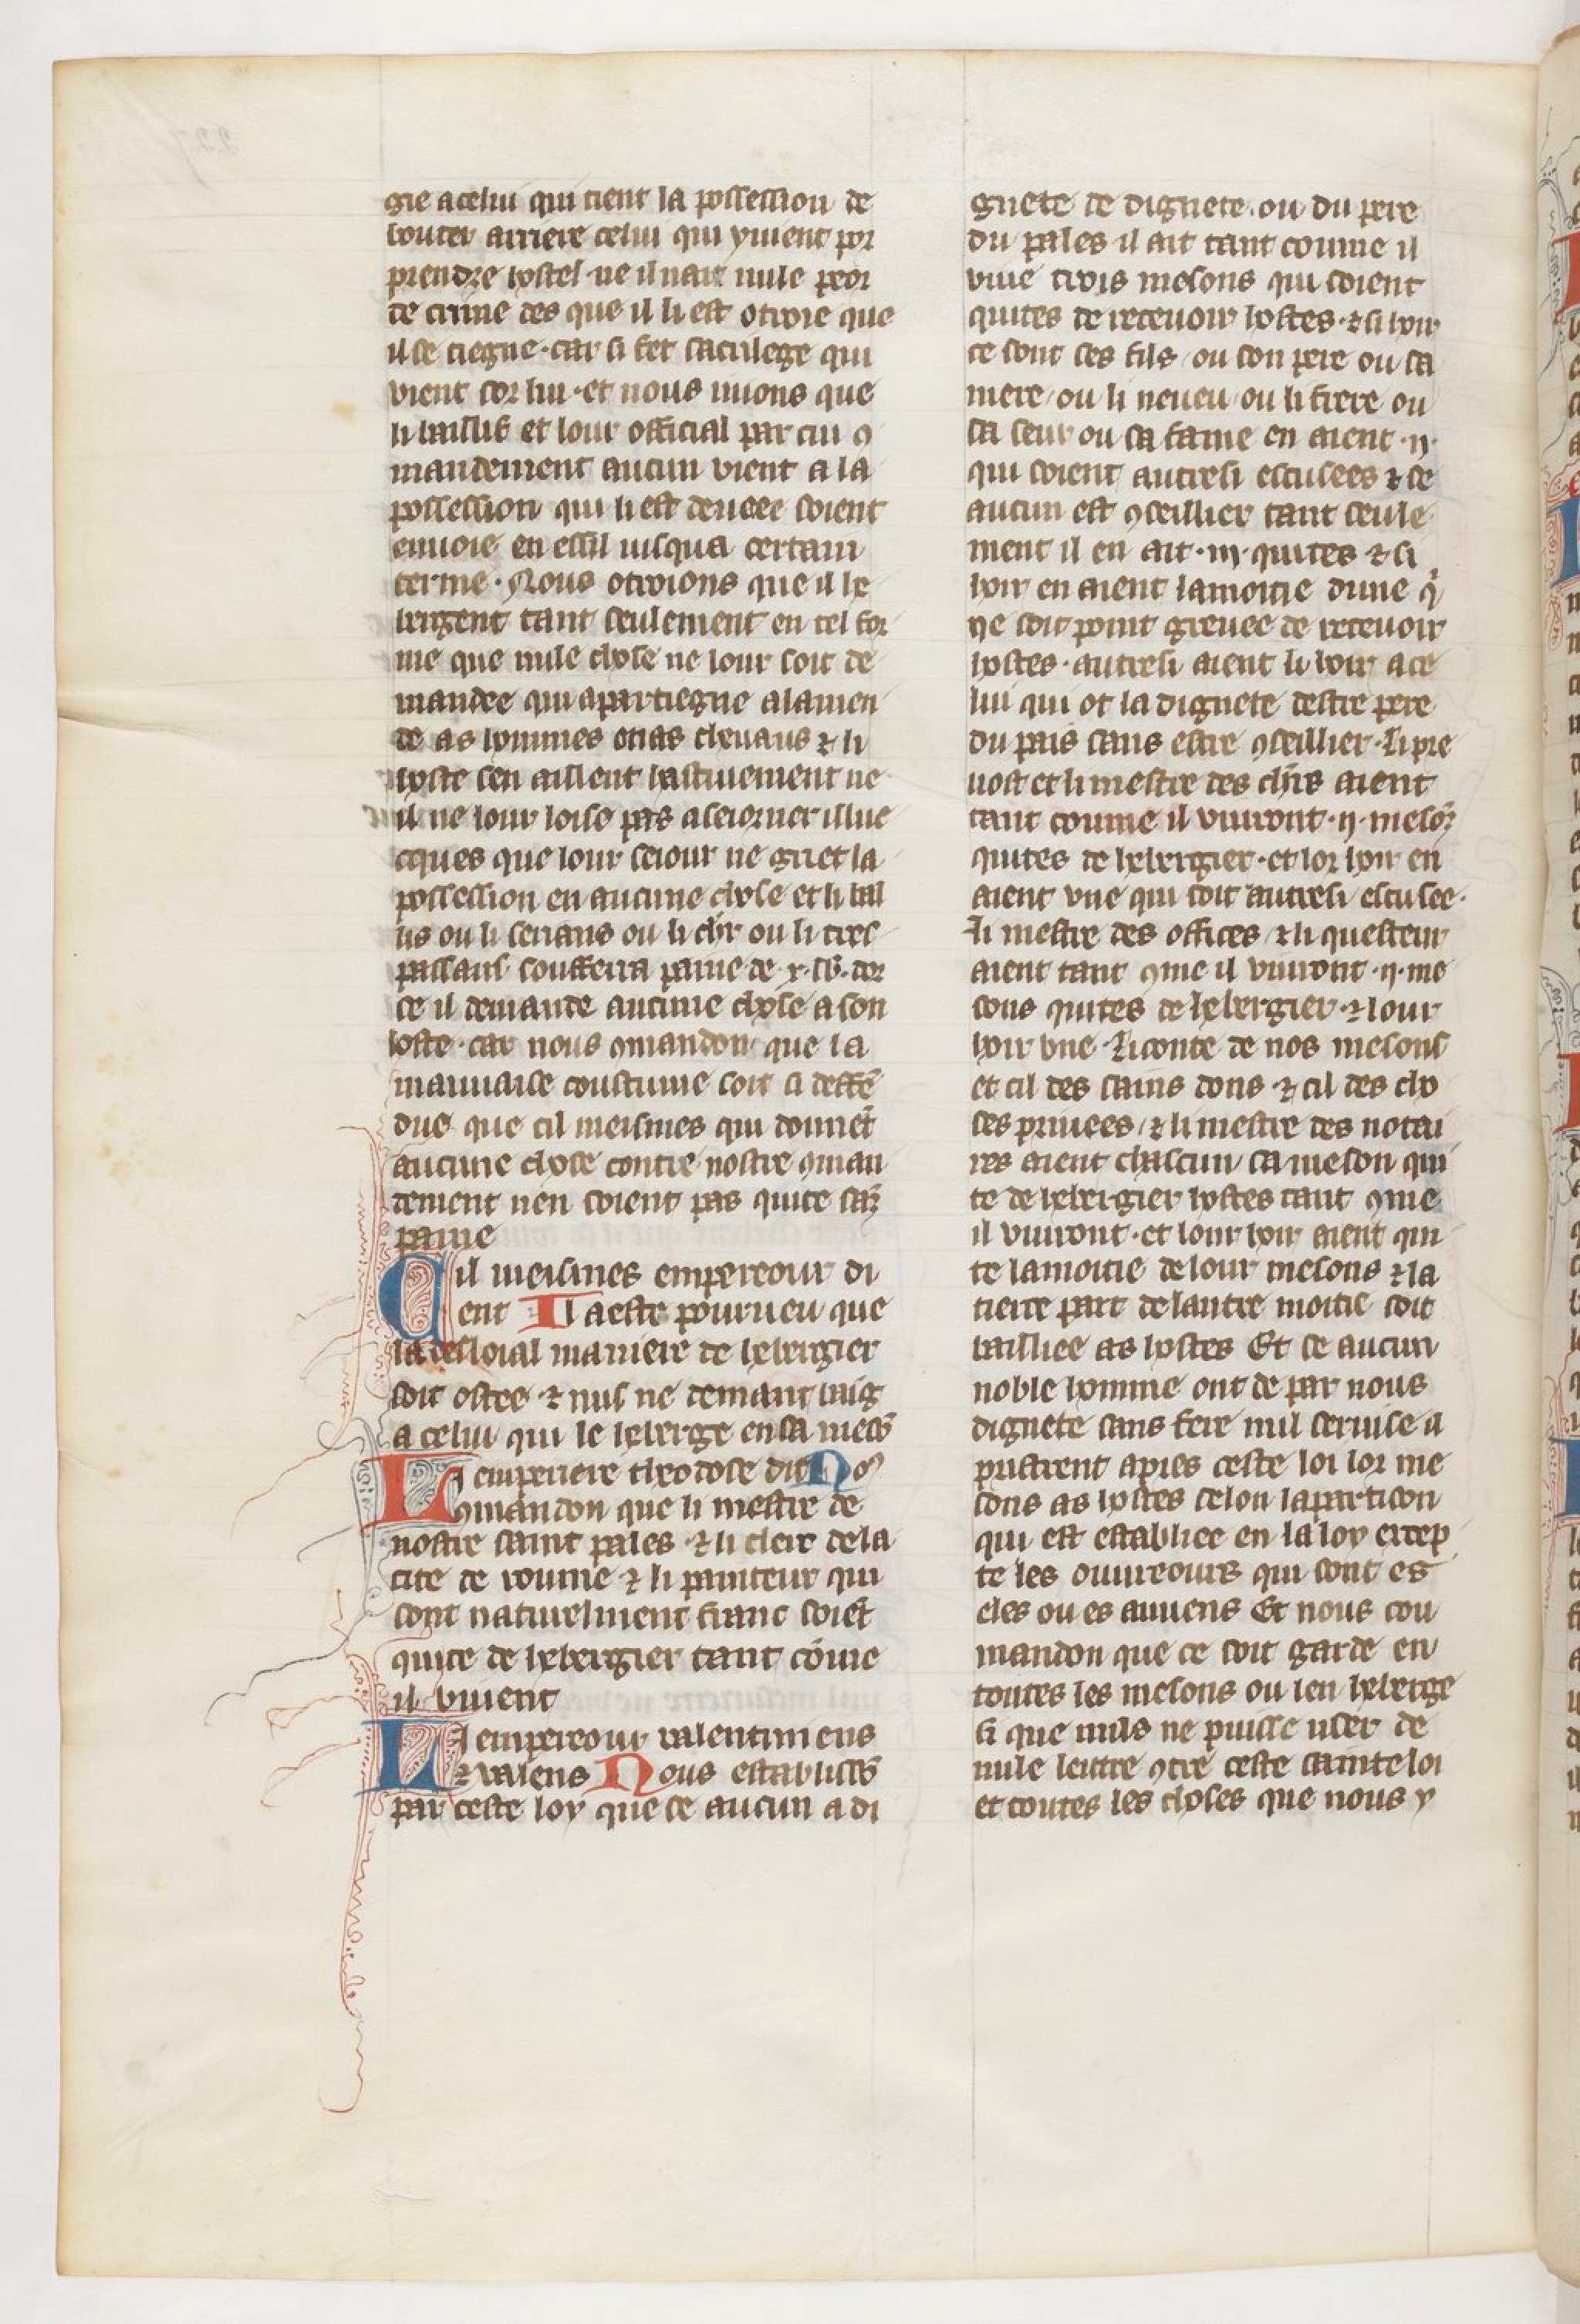 gie a celui qui tient la possession de
bouter arriere celui qui y vient por
prendre hostel ne il nait nule peor
de crime des que il li est otroie que
il se tiegne · car si fet sacrilege qui
vient sor lui · et nous iuions que
li baillif et lour official par cui ꝯ
mandement aucun vient a la
possession qui li est deueee soient
enuoie en essil iusqua certain
terme · Nous otroions que il he
bergent tant seulement en tel for
me que nule chose ne lour soit de
mandee qui apartiegne a lamen
de as hommes ou as cheuaus ⁊ li
hoste sen aillent hastiuement ne
il ne lour loise pas a seiorner illue
cques que lour seiour ne griet la
possession en aucune chose et li bal
lis ou li serians ou li chr̄ ou li tres
passans soufferra paine de · x · lb̄ · dor
se il demande aucune chose a son
hoste · car nous ꝯmandon que la
mauuaise coustume soit si deffē
due que cil meismes qui donnēt
aucune chose contre nostre ꝯman
dement nen soient pas quite sāz
paine
Cil meismes empereour di
ent Il a este pourueu que
la desloial maniere de hebergier
soit ostee · ⁊ nus ne demant baig
a celui qui le heberge en sa mesō
Li emperiere theodose dit No9
ꝯmandon que li mestre de
nostre saint pales · ⁊ li clerc de la
cite de roume ⁊ li painteur qui
sont naturelment franc soiēt
quite de hebergier tant cōme
il viuent
Li empereour valentiniens
⁊ valens Nous establissōs
par ceste loy que se aucun a di
gnete de dignete · ou du pere
du pales il ait tant comme il
viue trois mesons qui soient
quites de receuoir hostes · ⁊ si hoir
ce sont ses fils / ou son pere ou sa
mere / ou li neueu / ou li frere ou
sa seur ou sa fame en aient · ii ·
qui soient autresi escusees ⁊ se
aucun est ꝯseillier tant seule
ment il en ait · iii · quites ⁊ si
hoir en aient la moitie dune qͥ
ne soit point greuee de receuoir
hostes · autresi aient li hoir a ce
lui qui ot la dignete destre pere
du pais sans estre ꝯseillier · Li pre
uost et li mestre des chr̄s aient
tant comme il viuront · ii · mesōz
quites de hebergier · et lor hoir en
aient vne qui soit autresi escusee ·
Li mestre des offices / ⁊ li questeur
aient tant ꝯme il viuront · ii · me
sons quites de hebergier · ⁊ lour
hoir vne · Li conte de nos mesons
et cil des sains dons · ⁊ cil des cho
ses priuees / ⁊ li mestre des notai
res aient chascun sa meson qui
te de hebergier hostes tant ꝯme
il viuront · et lour hoir aient qui
te la moitie de lour mesons ⁊ la
tierce part de lautre moitie soit
bailliee as hostes Et se aucun
noble homme ont de par nous
dignete sans fere nul seruise il
prestrent apres ceste loi lor me
sons as hostes selon la particon
qui est establiee en la loy excep
te les ouureours qui sont es
eles ou es auuens Et nous cou
mandon que ce soit garde en
toutes les mesons ou len heberge
si que nuls ne puisse vser de
nule leittre ꝯtre ceste sainte loi
et toutes les choses que nous y